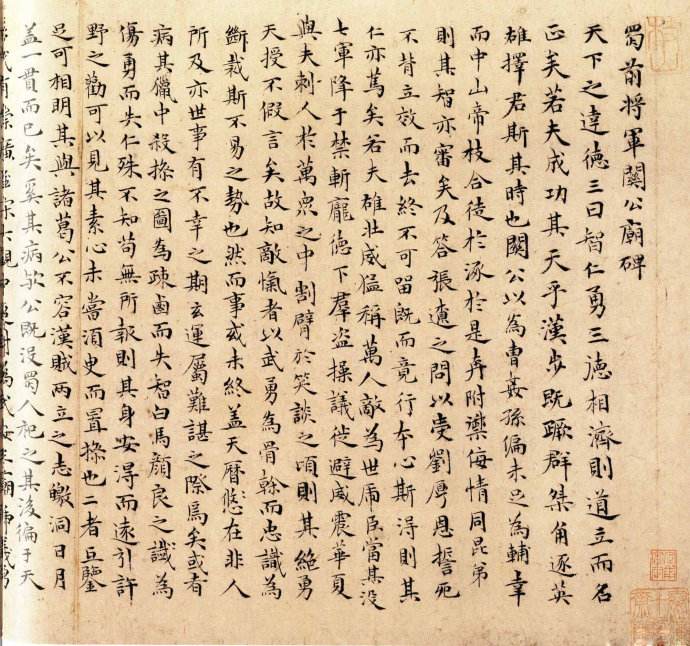 蜀前将軍關公廟碑
天下之達德三曰智仁勇三德相濟則道立而名
正矣若夫成功其天乎漢步既蹶群桀角逐英
雄擇君斯其時也關公以為曹姦孫偏未足為輔幸
而中山帝枝合徒於涿於是奔附禦侮情同昆弟
則其智亦審矣及答張遼之問以受劉厚恩誓死
不背立效而去終不可留既而竟行本心斯得則其
仁亦篤矣若夫雄壯威猛稱萬人敵為世虎臣當其沒
七軍降于禁斬龐德下羣盗操議徙避威震華夏
與夫刺人於萬衆之中割臂於笑談之頃則其絶勇
天授不假言矣故知敵愾者以武勇為骨榦而忠識為
斷裁斯不易之勢也然而事或未終盖天曆悠在非人
所及亦世事有不幸之期玄運屬難諶之際焉矣或有
病其獵中殺操之圖為疎鹵而失智白馬顏良之識為
傷勇而失仁殊不知苟無所報則其身安得而遠引許
野之勸可以見其素心未嘗須史而置操也二者互鑒
足可相明其與諸葛公不容漢賊兩立之志皦洞日月
盖一貫而已矣奚其病歟公既没蜀人祀之其後徧于天